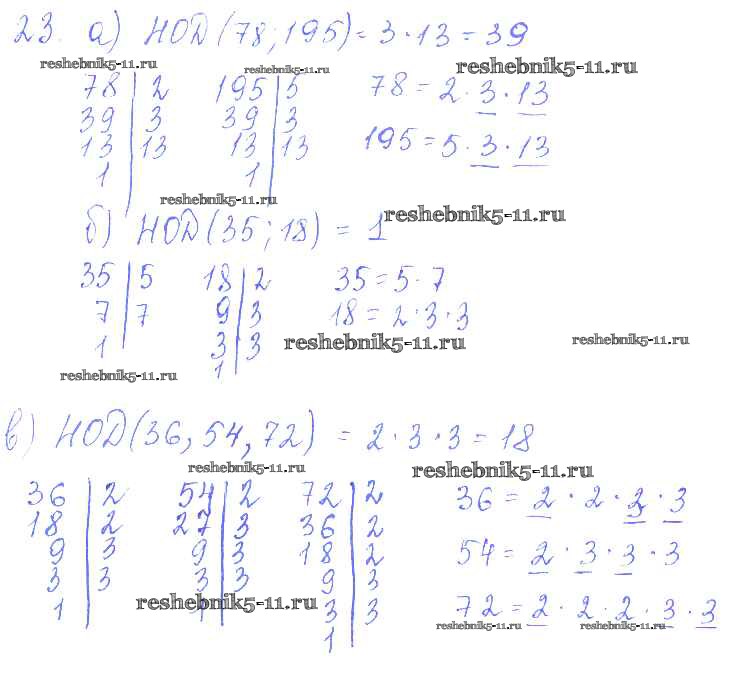 23. а) НОД(78; 195) = 3 · 13 = 39
reshebnik5-11.ru reshebnik5-11.ru reshebnik5-11.ru
78 | 2 195 | 5 78 = 2 · 3 · 13
39 | 3 39 | 3
13 | 13 13 | 13 195 = 5 · 3 · 13
1 | 1 |
reshebnik5-11.ru
б) НОД(35; 18) = 1 reshebnik5-11.ru
35 | 5 18 | 2 35 = 5 · 7
7 | 7 9 | 3 18 = 2 · 3 · 3
1 | 3 | 3 reshebnik5-11.ru reshebnik5-11.ru
reshebnik5-11.ru 1 |
в) НОД(36, 54, 72) = 2 · 3 · 3 = 18
reshebnik5-11.ru reshebnik5-11.ru
36 | 2 54 | 2 72 | 2 36 = 2 · 2 · 3 · 3
18 | 2 27 | 3 36 | 2
9 | 3 9 | 3 18 | 2 54 = 2 · 3 · 3 · 3
3 | 3 3 | 3 9 | 3
1 | reshebnik5-11.ru 1 | 3 | 3 72 = 2 · 2 · 2 · 3 · 3
reshebnik5-11.ru reshebnik5-11.ru
1 |